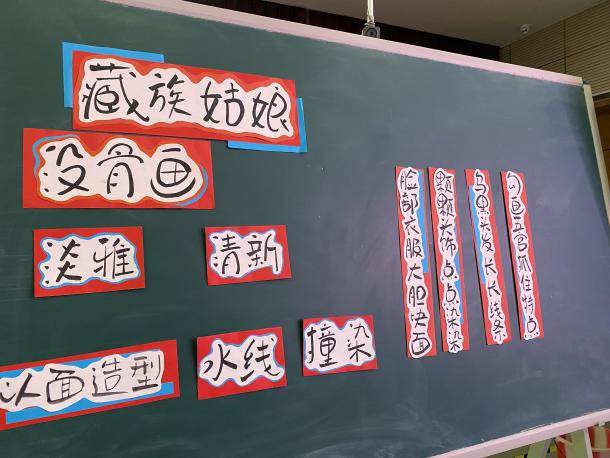 藏族姑娘
没骨画
淡雅
清新
以面造型
水线
撞染
勾画五官抓住特点
乌黑头发长长线条
颗颗头饰点点染染
脸部衣服大胆块面